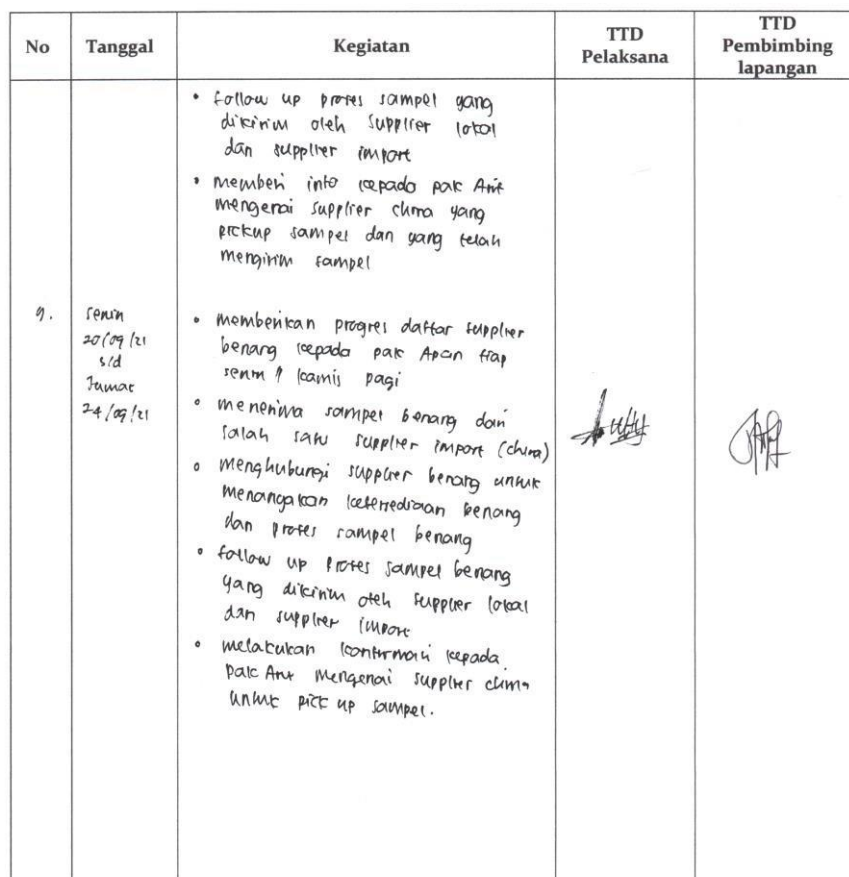 No Tanggal Kegiatan TTD Pelaksana TTD Pembimbing lapangan
• follow up proses sampel yang
dikirim oleh supplier lokal
dan supplier import
• memberi info kepada pak Arif
mengenai supplier china yang
pickup sampel dan yang telah
mengirim sampel
9.
Senin
20/09/21
s/d
Jumat
24/09/21
• memberikan progres daftar supplier
benang kepada pak tiap
senin & kamis pagi
• menerima sampel benang dari
salah satu supplier import (china)
• menghubungi supplier benang untuk
menanyakan ketersediaan benang
dan proses sampel benang
• follow up proses sampel benang
yang dikirim oleh supplier lokal
dan supplier import
• melakukan konfirmasi kepada
pak Arif mengenai supplier china
untuk pick up sampel.